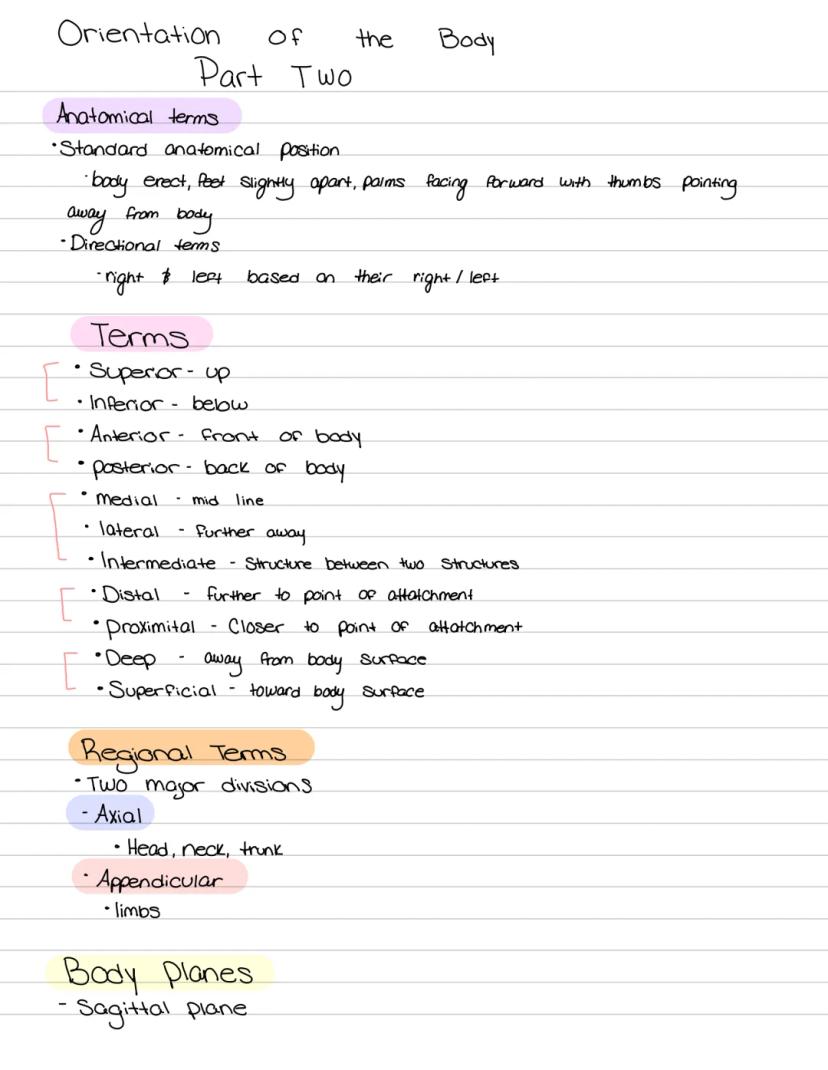 Orientation of the Body
Part Two
Anatomical terms
·Standard anatomical position
·body erect, feet slightly apart, palms facing forward with thumbs pointing
away from body
·Directional terms
·right & left based on their right/left
Terms
·Superior - up
·Inferior - below
·Anterior - front of body
·posterior - back of body
·medial - mid line
·lateral - further away
·Intermediate - Structure between two structures
·Distal - further to point of attatchment
·Proximital - Closer to point of attatchment
·Deep - away from body surface
·Superficial - toward body surface
Regional Terms
·Two major divisions
- Axial
·Head, neck, trunk
·Appendicular
·limbs
Body planes
- Sagittal plane